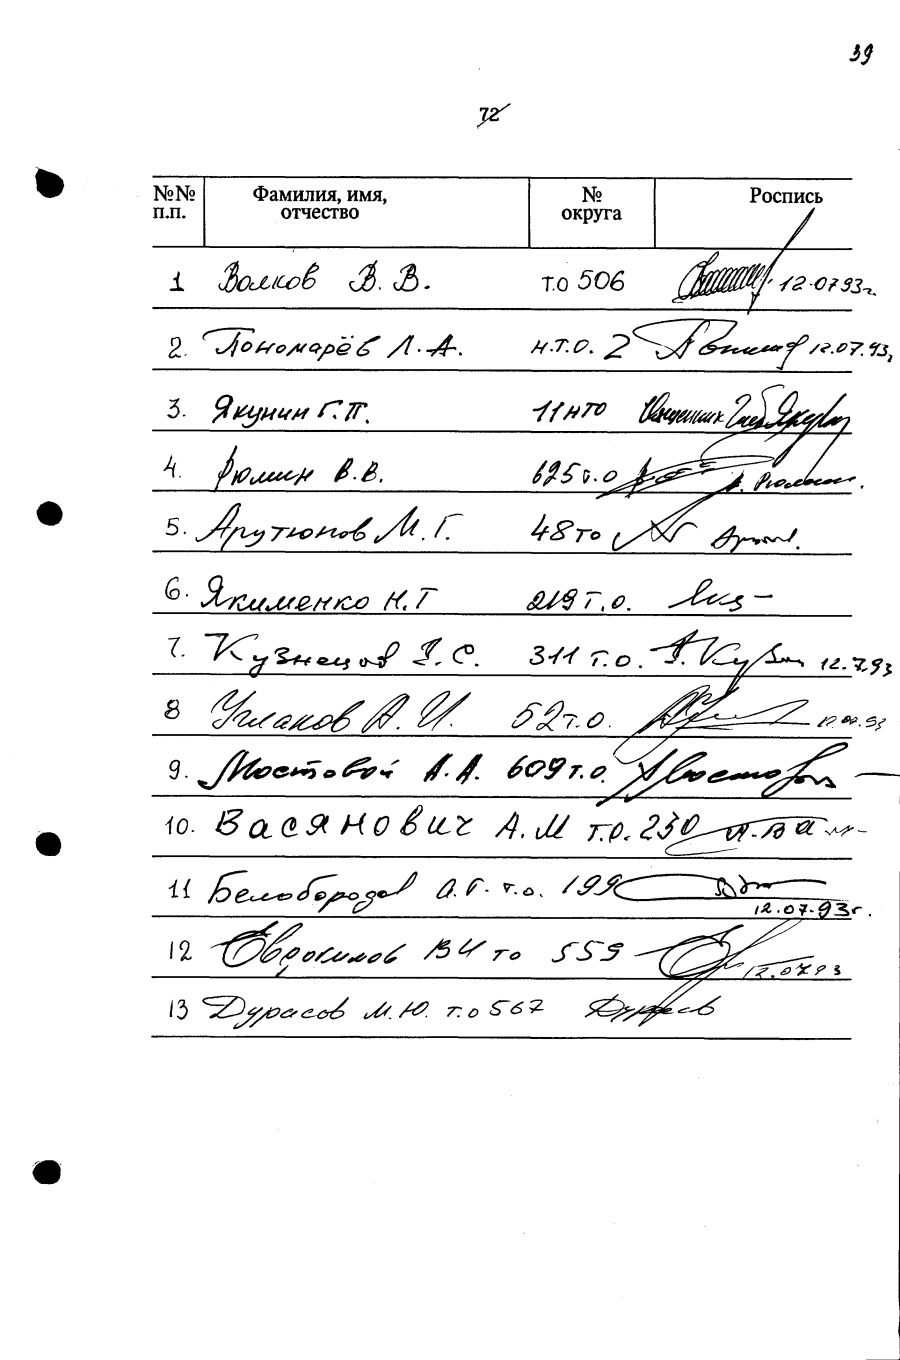 39
72
№№ п.п. Фамилия, имя, отчество № округа Роспись
1 Волков В. В. т.о 506 12.07.93г.
2. Пономарёв Л.А. н.т.о. 2 12.07.93г
3. Якунин Г.П. 11 нто Священник Глеб Якунин
4. Рюмин В.В. 625 т.о В. Рюмин.
5. Арутюнов М.Г. 48 то
6. Якименко Н.Т 219 т.о.
7. Кузнецов В.С. 311 т.о. 12.7.93
8 Углаков А.И. 52 т.о. 12.07.93
9. Мостовой А.А. 609 т.о.
10. Васянович А.М т.о. 230
11 Белобородов А.Г. т.о. 199 12.07.93г.
12 Евдокимов ВИ то 559 12.07.93
13 Дурасов М.Ю. т.о 567 Дурасов